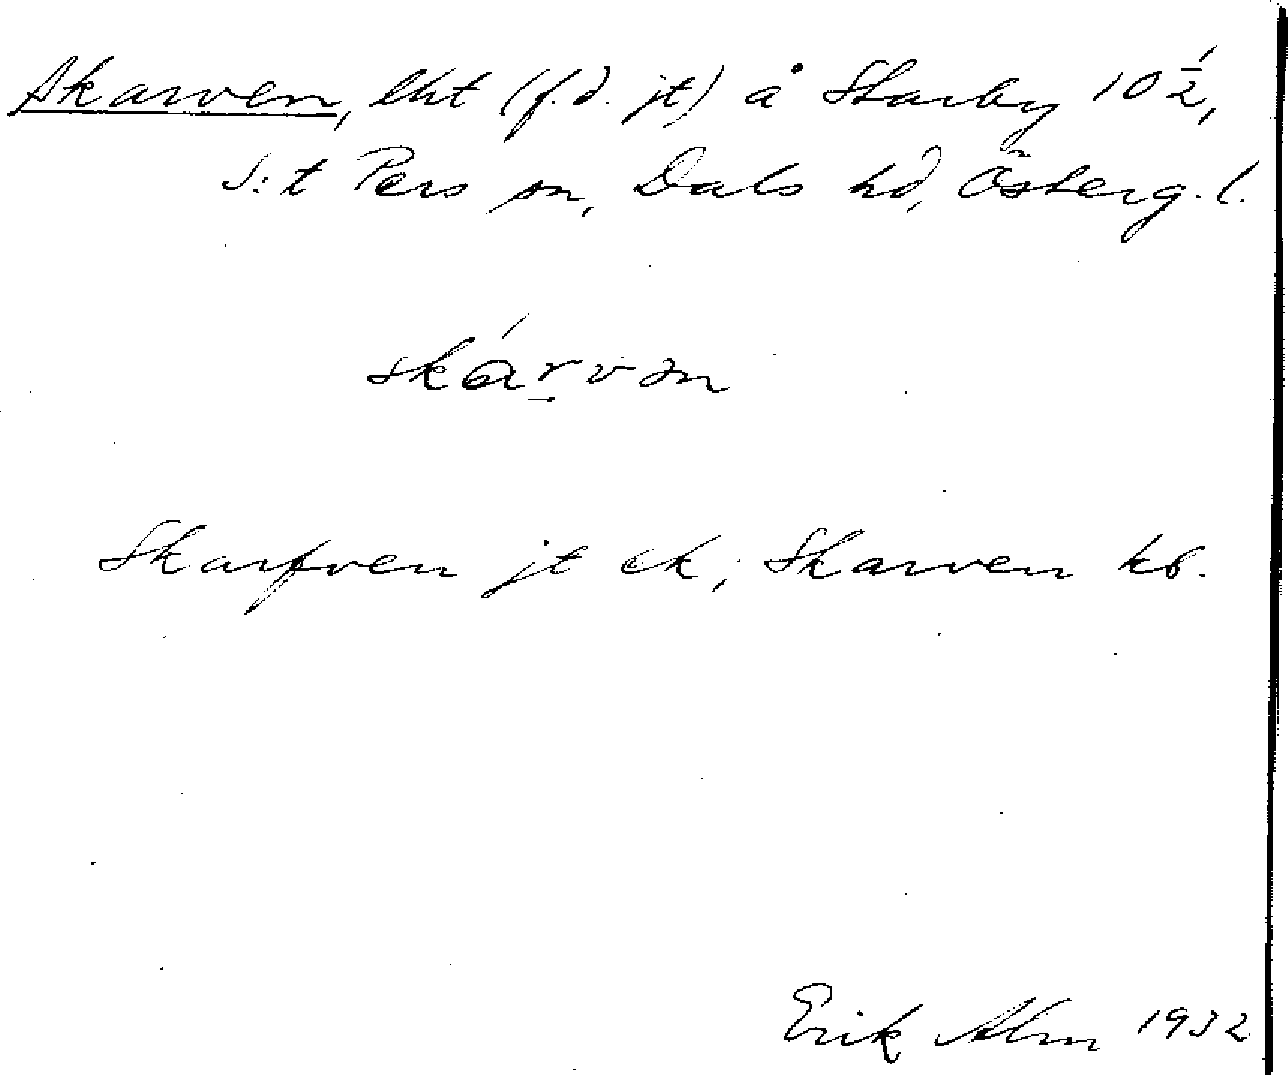 Skarven, lht (f.d. jt) å Starby 10 1/2,
S:t Pers sn, Dals hd, Österg. l.
skárvən
Skarfven jt ek; Skarven kb.
Erik Alm 1932